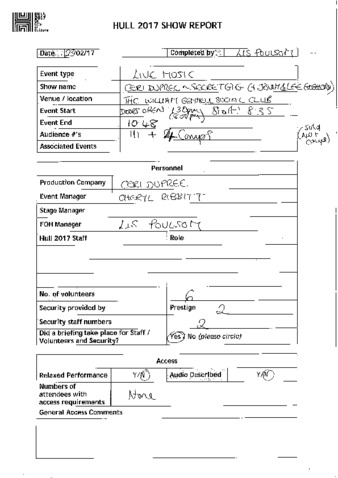 HULL 2017 SHOW REPORT
Date 23/02/17 Completed by: LIS POULSOM
Event type LIVE MUSIC
Show name CERI DUPREE
Venue / location THE WILLIAM GEMMELL SOCIAL CLUB
Event Start DOORS OPEN Start: 8.35
Event End 10.48
Audience #'s 141 + 4 Comps
Associated Events
Personnel
Production Company CERI DUPREE
Event Manager CHERYL
Stage Manager
FOH Manager LIS POULSOM
Hull 2017 Staff Role
No. of volunteers 6
Security provided by Prestige 2
Security staff numbers 2
Did a briefing take place for Staff / Yes / No (please circle)
Volunteers and Security?
Access
Relaxed Performance Y/N Audio Described Y/N
Numbers of
attendees with None
access requirements
General Access Comments